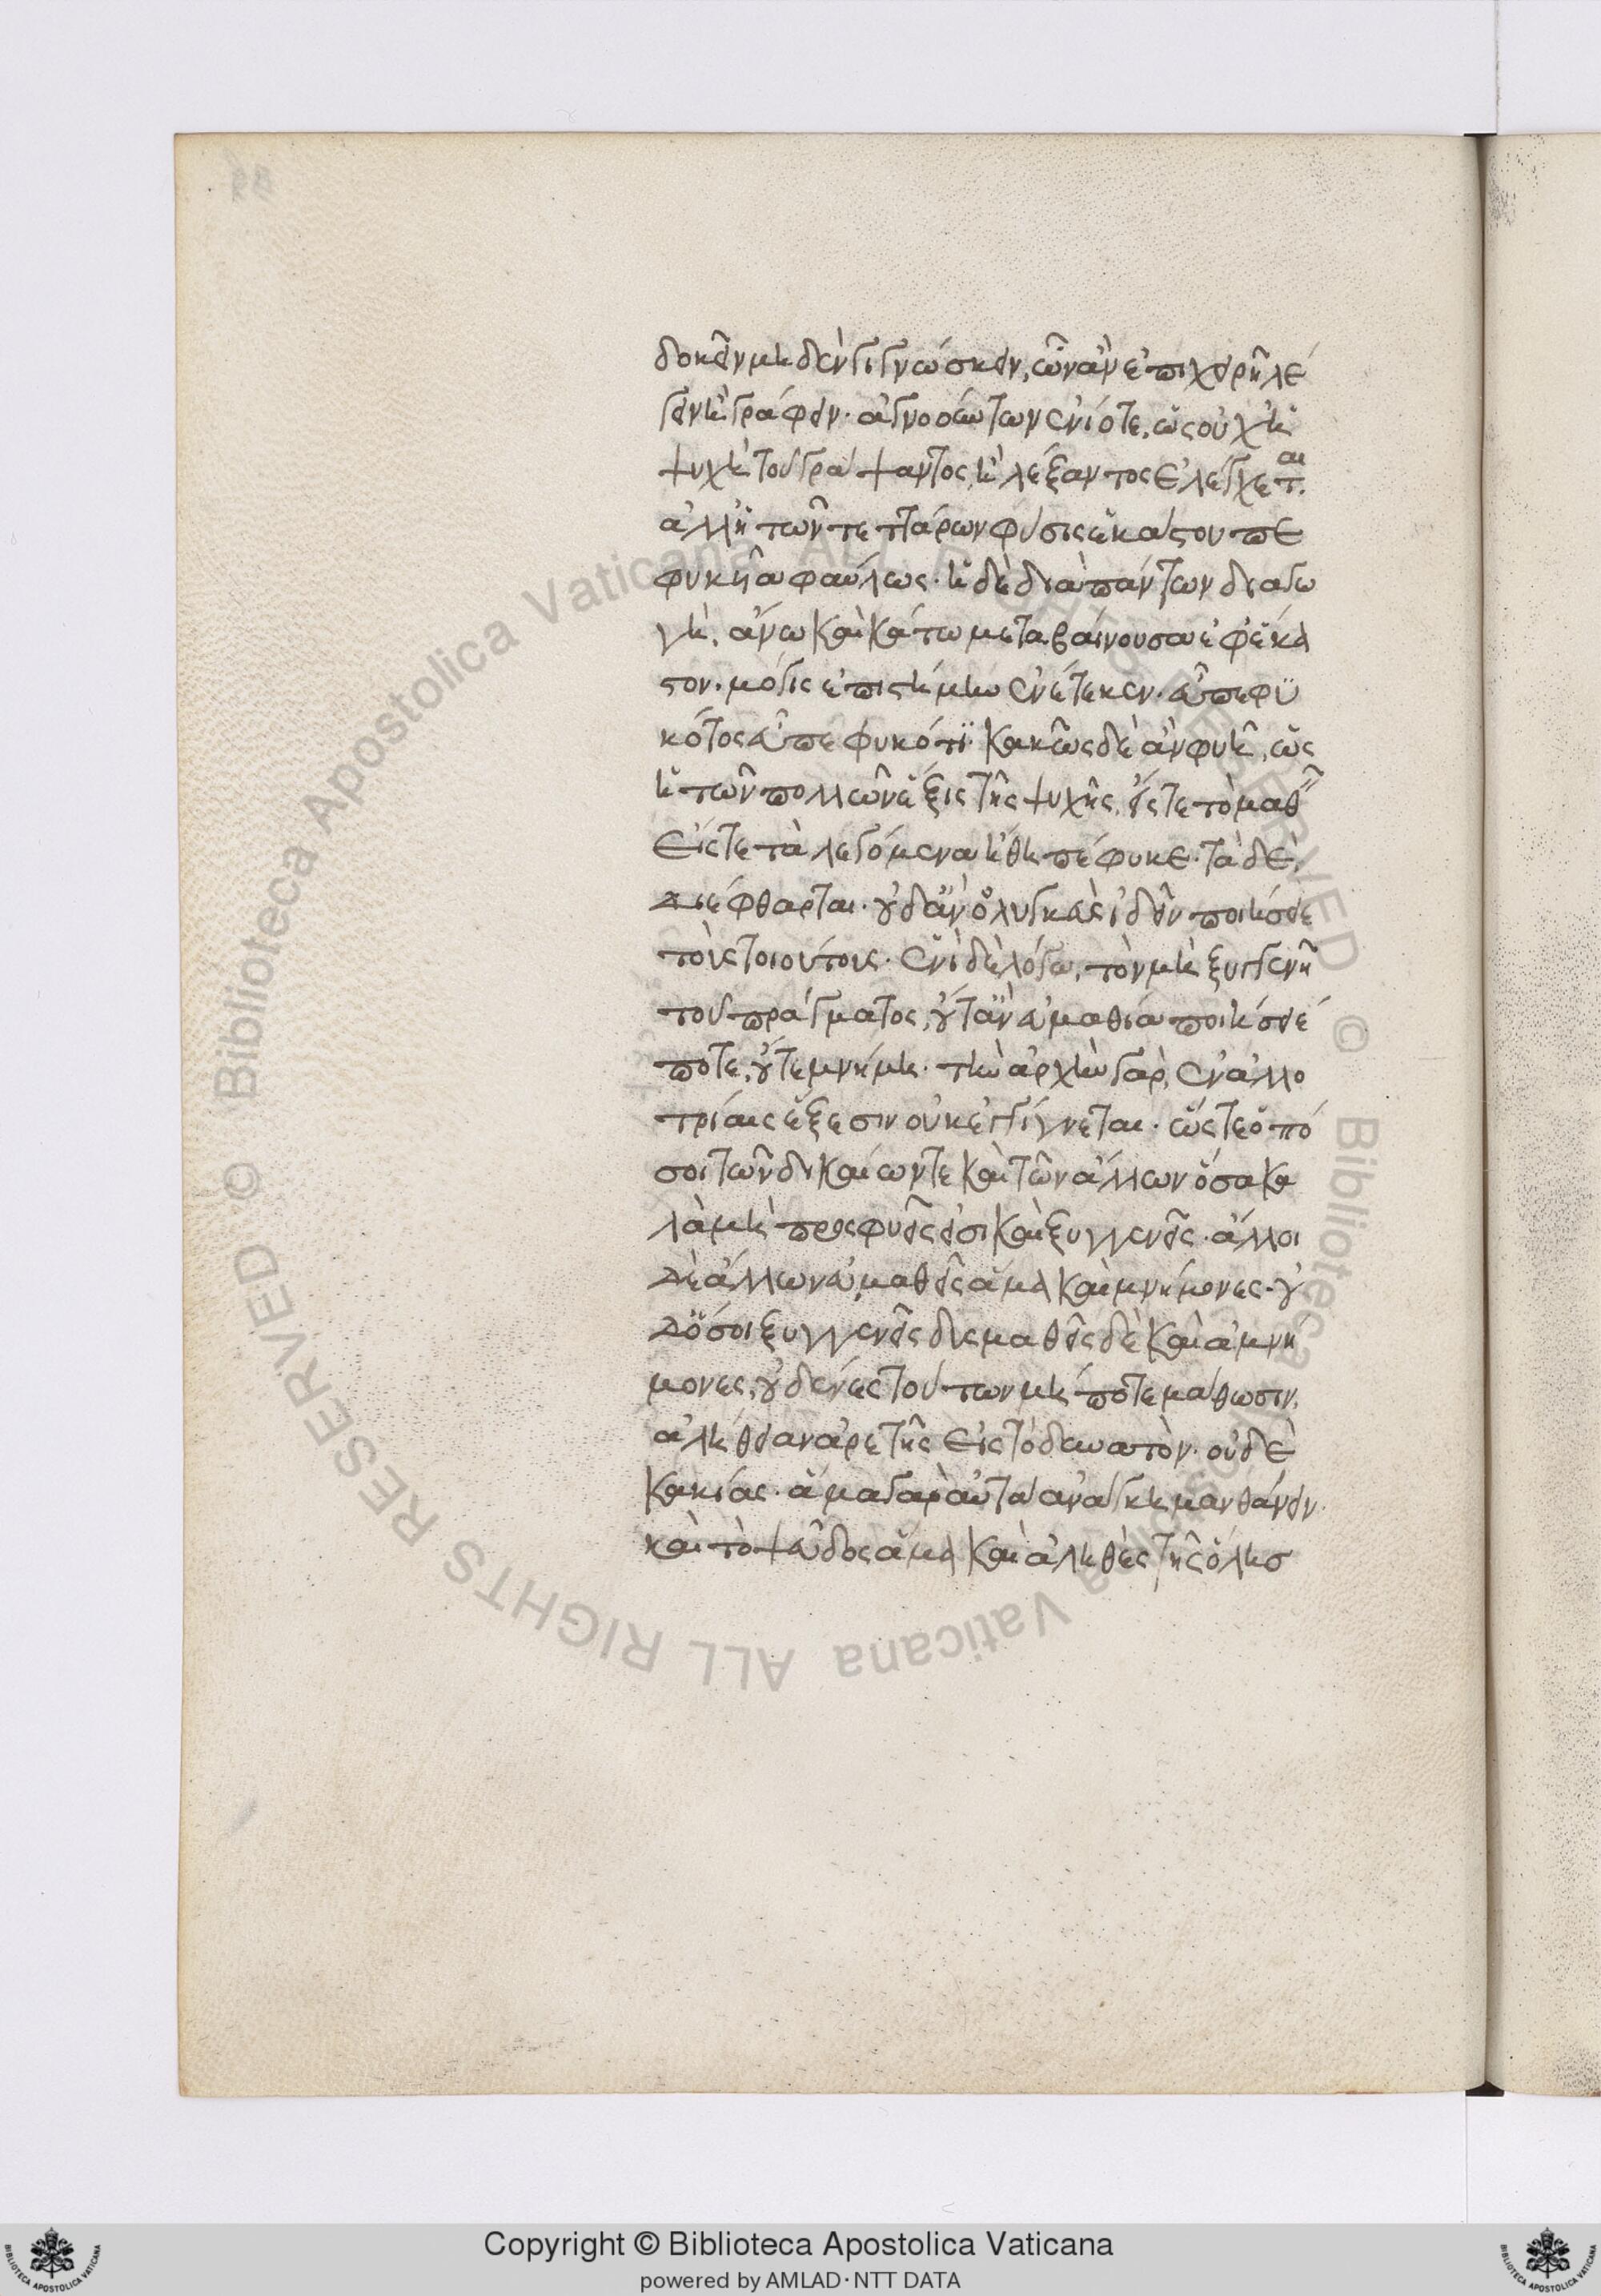 δοκεῖν μηδὲν γιγνώσκειν, ὧν ἂν ἐπιχειρῇ λέ
γειν ἢ γράφειν. ἀγνοούντων ἐνίοτε, ὡς οὐχ ἡ
ψυχὴ τοῦ γράψαντος ἢ λέξαντος ἐλέγχεται.
ἀλλ' ἡ τῶν τεττάρων φύσις ἑκάστου πε
φυκῖα φαύλως. ἡ δὲ διὰ πάντων διαγω
γή, ἄνω καὶ κάτω μεταβαίνουσα ἐφ' ἕκα
στον. μόγις ἐπιστήμην ἐνέτεκεν. εὖ πεφυ
κότος εὖ πεφυκότι. κακῶς δὲ ἂν φυῇ, ὡς
ἡ τῶν πολλῶν ἕξις τῆς ψυχῆς, εἴς τε τὸ μαθεῖν
εἴς τε τὰ λεγόμενα ἤθη πέφυκε. τὰ δὲ
διέφθαρται. οὐδ' ἂν ὁ λυγκεὺς ἰδεῖν ποιήσειε
τοὺς τοιούτους. ἑνὶ δὲ λόγῳ, τὸν μὴ ξυγγενῆ
τοῦ πράγματος, οὔτ' ἂν εὐμαθία ποιήσειέ
ποτε, οὔτε μνήμη. τὴν ἀρχὴν γὰρ, ἐν ἀλλο
τρίαις ἕξεσιν οὐκ ἐγγίγνεται. ὥστε ὁπό
σοι τῶν δικαίων τε καὶ τῶν ἄλλων ὅσα κα
λὰ μὴ προσφυεῖς εἰσι καὶ ξυγγενεῖς. ἄλλοι
δὲ ἄλλων εὐμαθεῖς ἅμα καὶ μνήμονες. οὐ
δ' ὅσοι ξυγγενεῖς δυσμαθεῖς δὲ καὶ ἀμνή
μονες, οὐδένες τούτων μήποτε μάθωσιν,
ἀλήθειαν ἀρετῆς εἰς τὸ δυνατὸν. οὐδὲ
κακίας. ἅμα γὰρ αὐτὰ ἀνάγκη μανθάνειν.
καὶ τὸ ψεῦδος ἅμα καὶ ἀληθὲς τῆς ὅλης